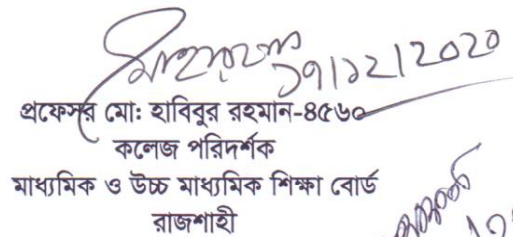 ১৭/১২/২০২০
প্রফেসর মো: হাবিবুর রহমান-৪৫৬০
কলেজ পরিদর্শক
মাধ্যমিক ও উচ্চ মাধ্যমিক শিক্ষা বোর্ড
রাজশাহী